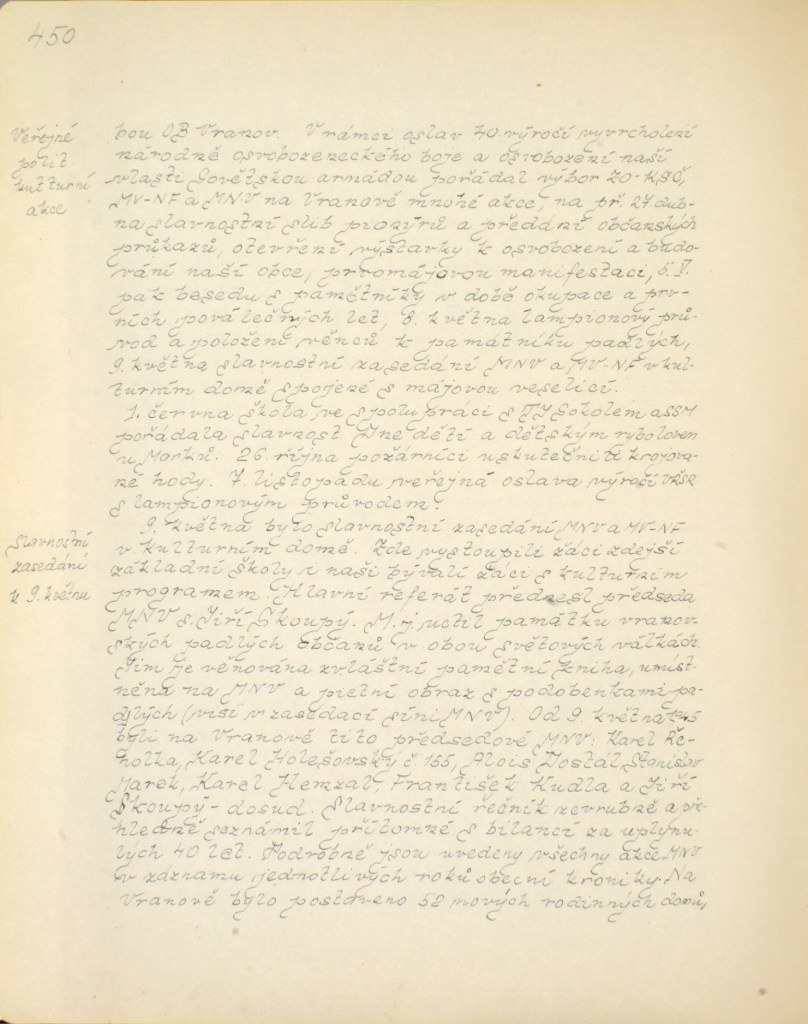 450
Veřejné
polit.
kulturní
akce
bou OB Vranov. V rámci oslav 40. výročí vyvrcholení
národně osvobozeneckého boje a osvobození naší
vlasti Sovětskou armádou pořádal výbor ZO-KSČ,
MV-NF a MNV na Vranově mnohé akce, na př. 27. dub-
na slavnostní slib pionýrů a předání občanských
průkazů, otevření výstavky k osvobození a budo-
vání naší obce, prvomájovou manifestaci, 5. V.
pak besedu s pamětníky v době okupace a prv-
ních poválečných let, 8. května lampionový prů-
vod a položení věnců k památníku padlých,
9. května slavnostní zasedání MNV a MV-NF v kul-
turním domě spojené s májovou veselicí.
1. června škola ve spolupráci s TJ Sokolem a SSM
pořádala slavnost Dne dětí a dětským rybolovem
u Marků. 26. října požárníci uskutečnili krojova-
né hody. 7. listopadu veřejná oslava výročí VŘSR
s lampionovým průvodem.
Slavnostní
zasedání
k 9. květnu
9. května bylo slavnostní zasedání MNV a MV-NF
v kulturním domě. Zde vystoupili žáci zdejší
základní školy i naši bývalí žáci s kulturním
programem. Hlavní referát přednesl předseda
MNV s. Jiří Skoupý. M. j. uctil památku vranov-
ských padlých občanů v obou světových válkách.
Jim je věnována zvláštní pamětní kniha, umíst-
něná na MNV a pietní obraz s podobenkami pa-
dlých (visí v zasedací síni MNV). Od 9. května 1945
byli na Vranově tito předsedové MNV: Karel Ře-
holka, Karel Holešovský č. 155, Alois Dostál, Stanislav
Marek, Karel Hemzal, František Kudla a Jiří
Skoupý - dosud. Slavnostní řečník zevrubně a pře-
hledně seznámil přítomné s bilancí za uplynu-
lých 40 let. Podrobně jsou uvedeny všechny akce MNV
v záznamu jednotlivých roků obecní kroniky. Na
Vranově bylo postaveno 52 nových rodinných domů,